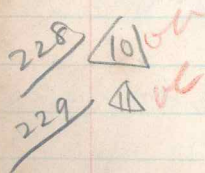 228 10 ok
229 11 ok